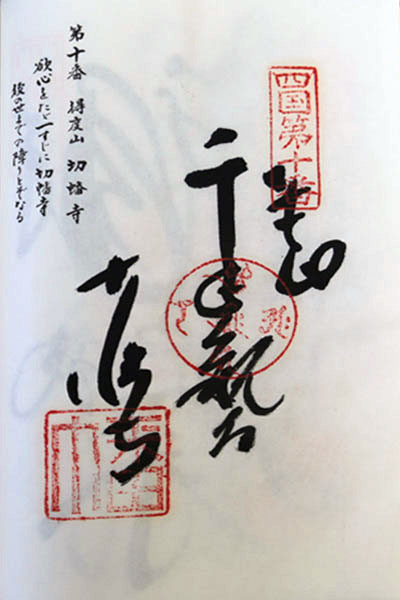 四国第十番
千手
切幡寺
第十番 得度山 切幡寺
欲心をたゞ一すじに切幡寺
後の世までの障りとぞなる